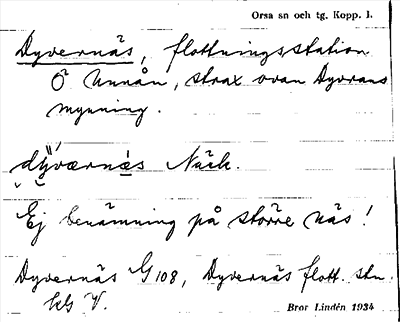 Orsa sn och tg. Kopp. l.
Dyvernäs, flottningsstation
Ö Unnån, strax ovan Dyvrans
mynning.
dyværnäs Näck.
Ej benämning på större näs!
Dyvernäs G 108, Dyvernäs flott. stn.
kbl V.
Bror Lindén 1934